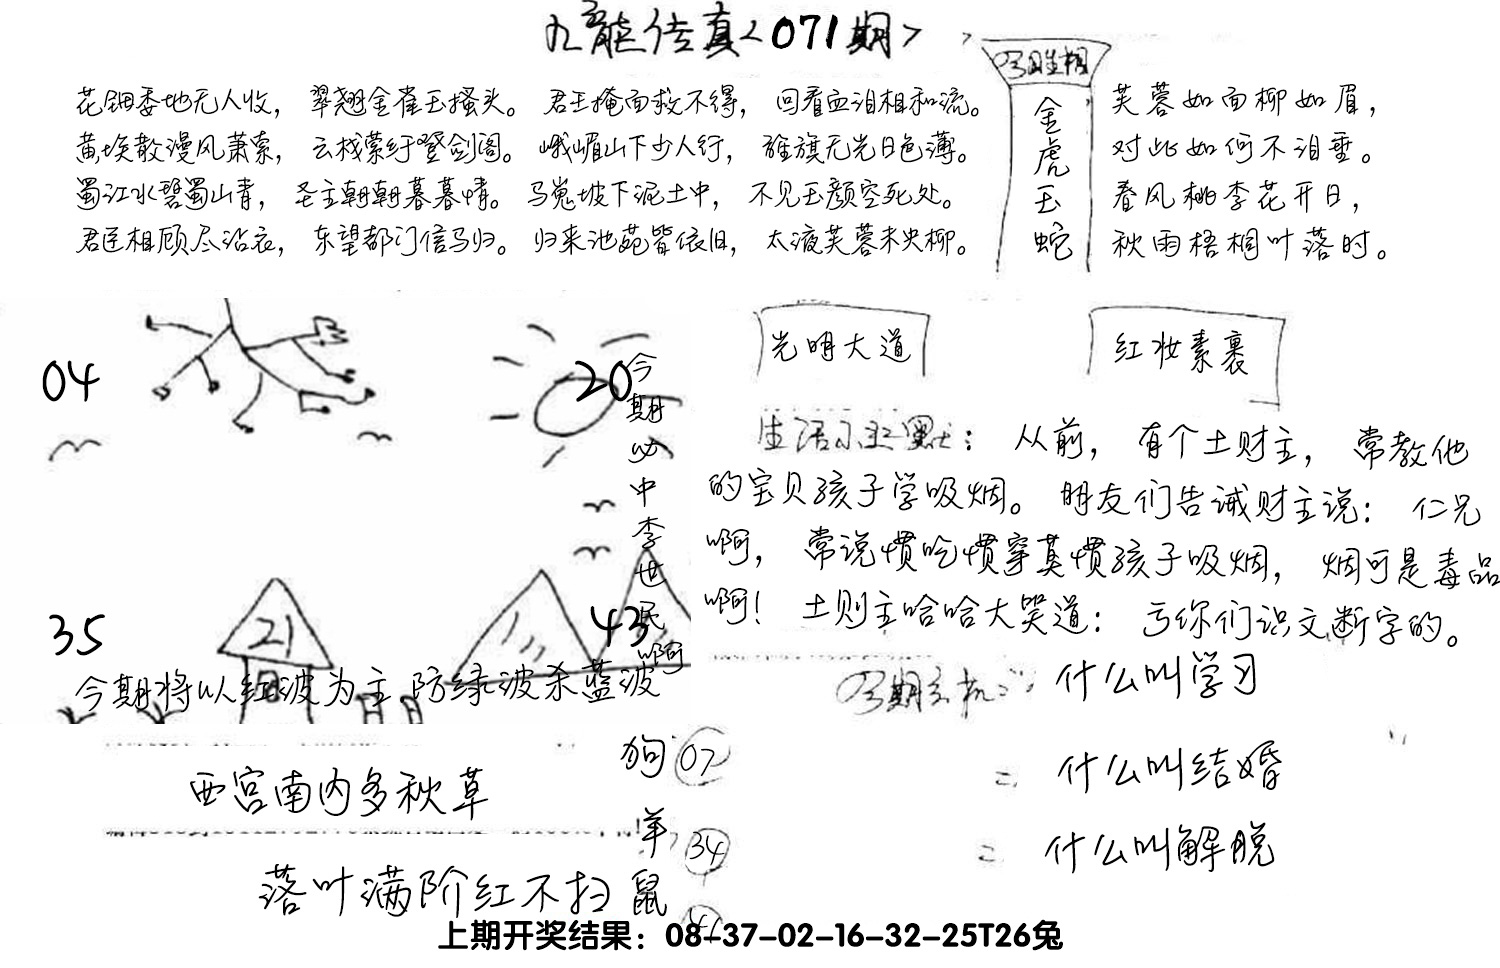 九龙传真<071期>
花钿委地无人收，翠翘金雀玉搔头。君王掩面救不得，回看血泪相和流。
黄埃散漫风萧索，云栈萦纡登剑阁。峨嵋山下少人行，旌旗无光日色薄。
蜀江水碧蜀山青，圣主朝朝暮暮情。马嵬坡下泥土中，不见玉颜空死处。
君臣相顾尽沾衣，东望都门信马归。归来池苑皆依旧，太液芙蓉未央柳。
今期生相
金虎玉蛇
芙蓉如面柳如眉，
对此如何不泪垂。
春风桃李花开日，
秋雨梧桐叶落时。
04
20
35
21
43
今期必中李世民啊
今期将以红波为主防绿波杀蓝波
光明大道
红妆素裹
生活小幽默：从前，有个土财主，常教他
的宝贝孩子学吸烟。朋友们告诫财主说：仁兄
啊，常说惯吃惯穿莫惯孩子吸烟，烟可是毒品
啊！土财主哈哈大笑道：亏你们识文断字的。
今期玄机：什么叫学习
= 什么叫结婚
= 什么叫解脱
西宫南内多秋草
落叶满阶红不扫
狗 07
羊 34
鼠
上期开奖结果：08-37-02-16-32-25T26兔